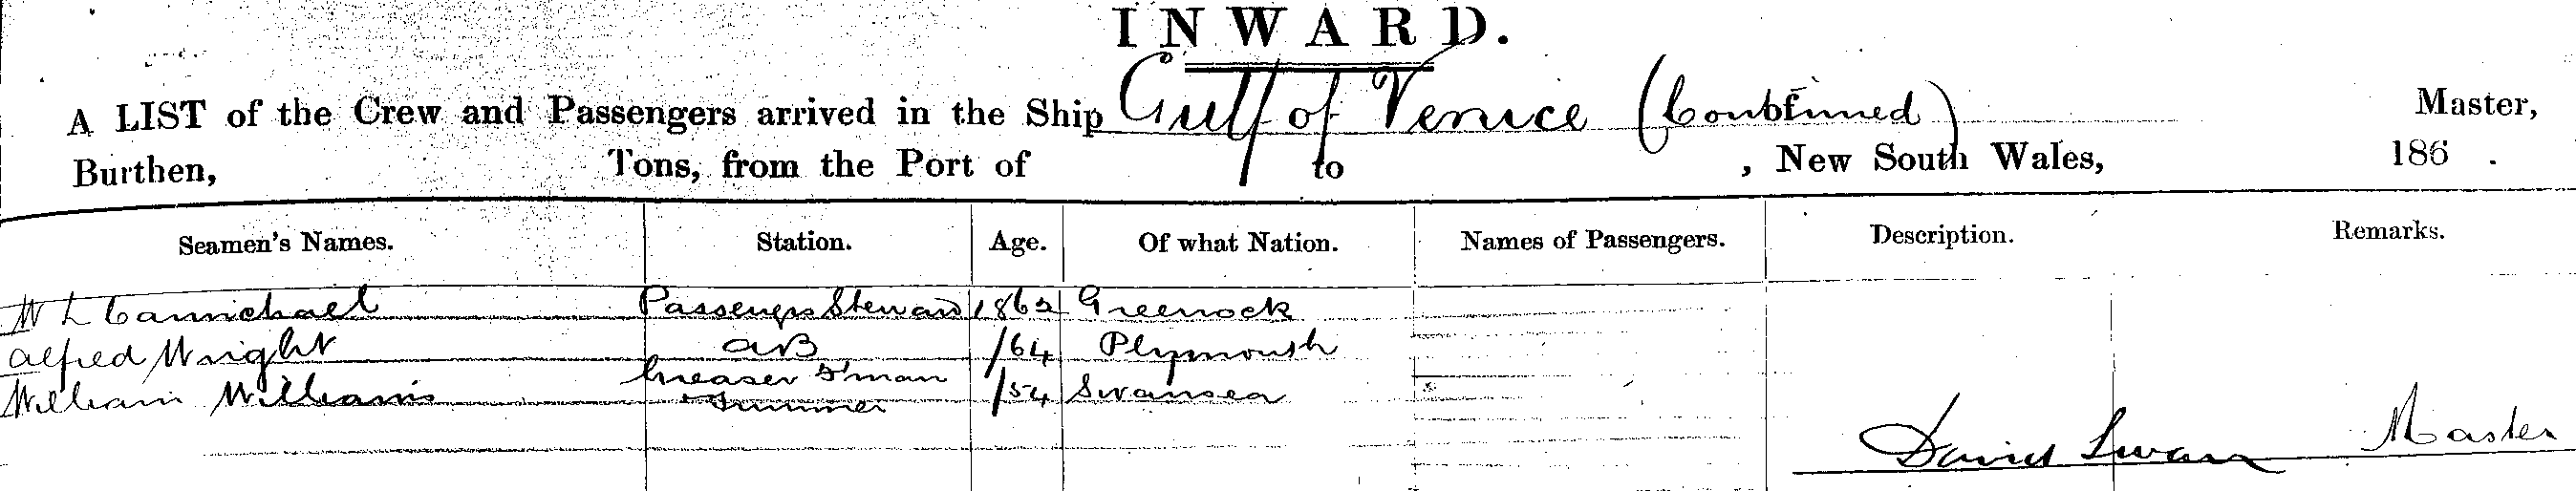 INWARD.
A LIST of the Crew and Passengers arrived in the Ship Gulf of Venice (Continued) Master,
Burthen, Tons, from the Port of to , New South Wales, 186 .
Seamen's Names. Station. Age. Of what Nation. Names of Passengers. Description. Remarks.
W L Carmichael Passengrs Steward 1862 Greenock
Alfred Wright AB /64 Plymouth
William Williams Greaser F'man + Trimmer /54 Swansea
David Swan Master